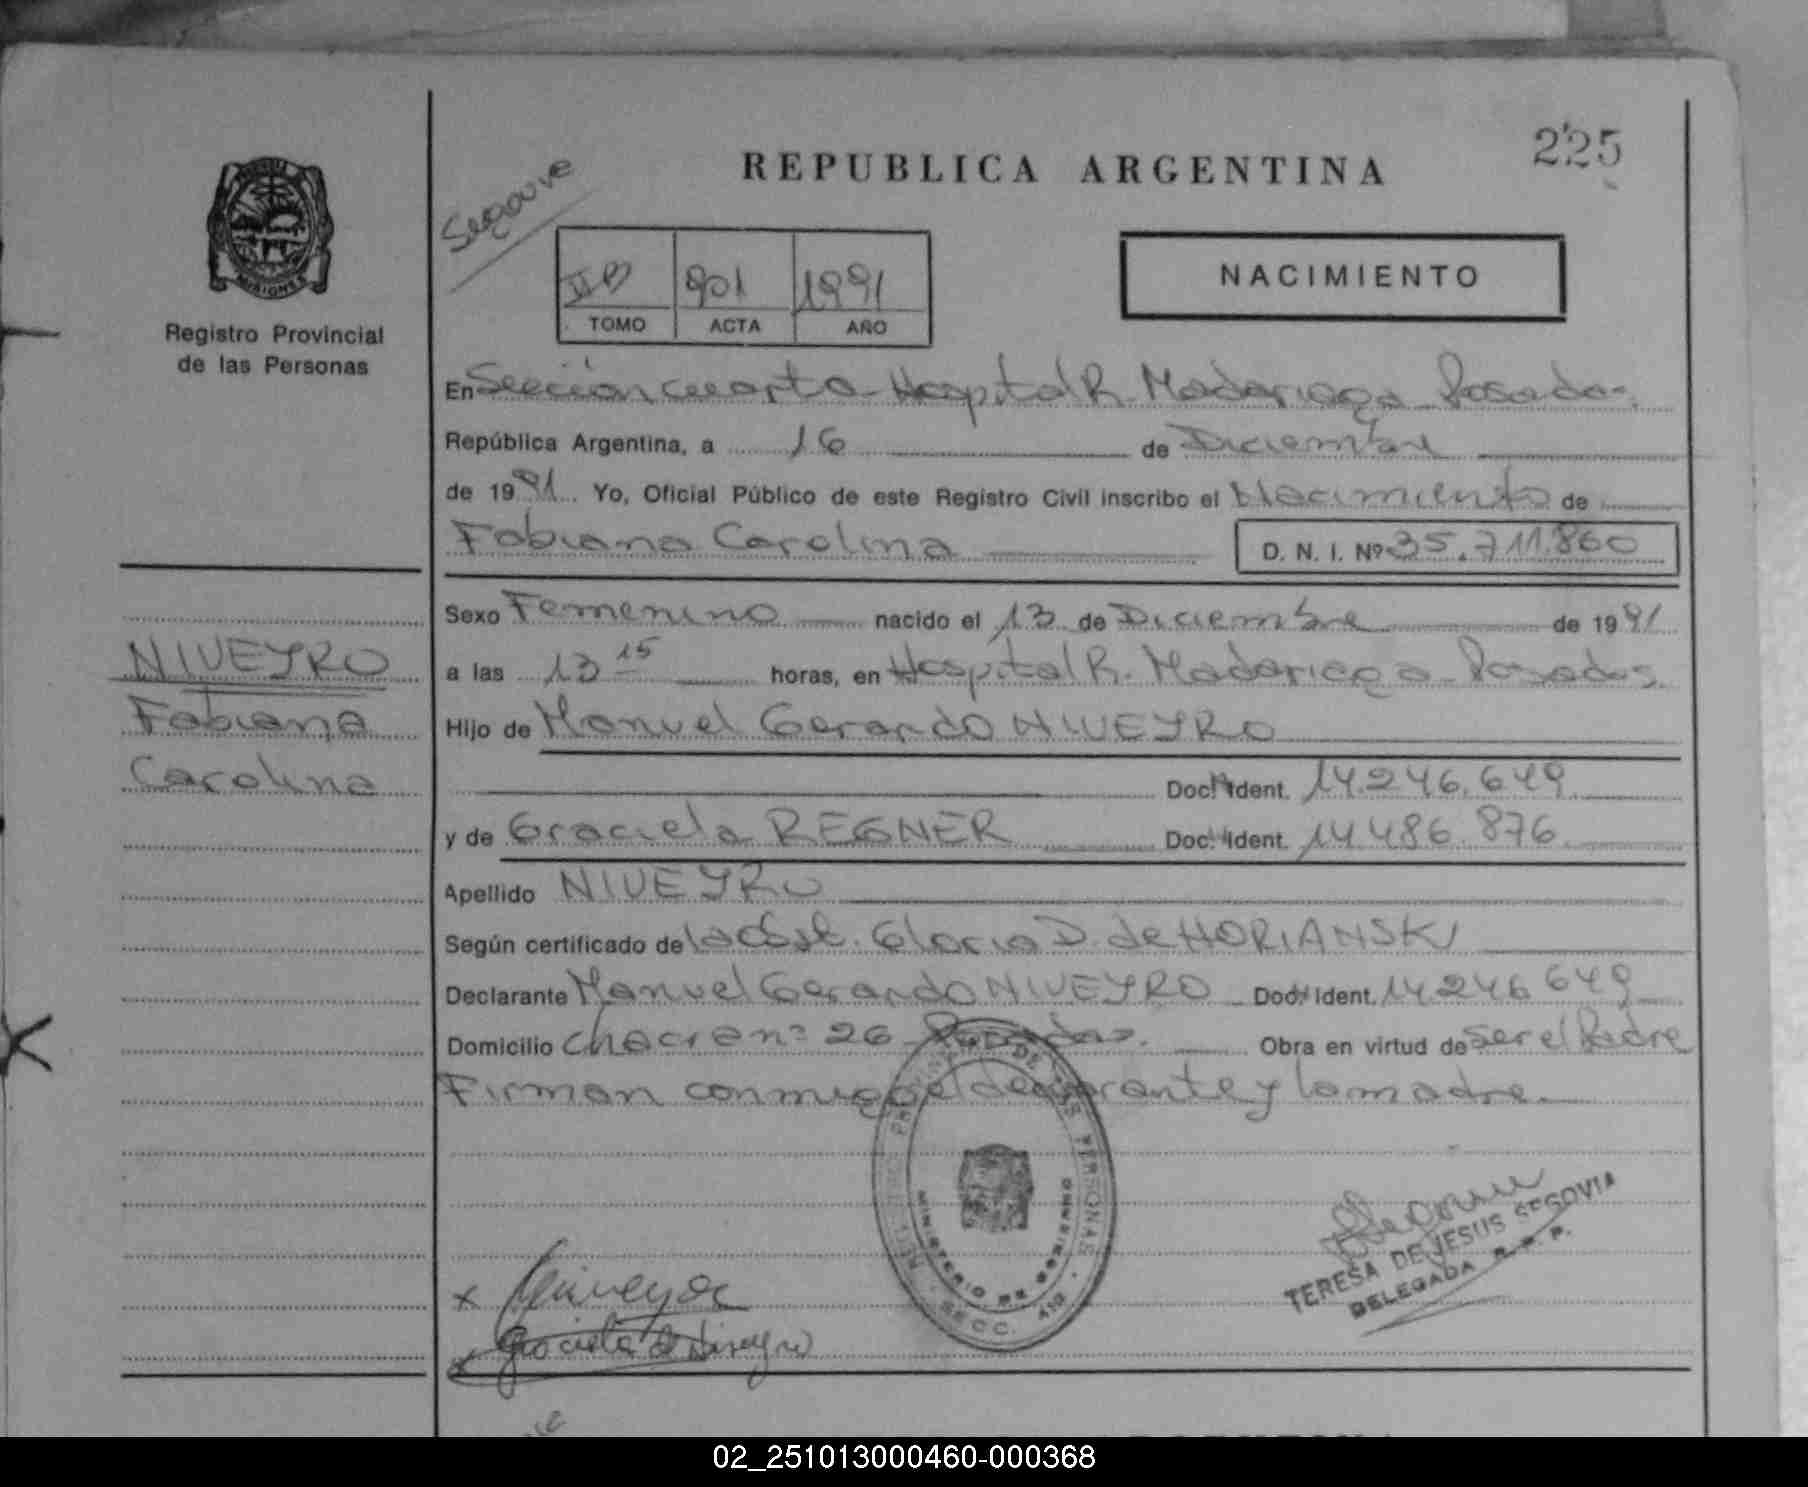 225
REPUBLICA ARGENTINA
MISIONES
Registro Provincial
de las Personas
II B 901 1991
TOMO ACTA AÑO
NACIMIENTO
En Sección cuarta - Hospital R. Madariaga - Posadas.
República Argentina, a 16 de Diciembre
de 1991. Yo, Oficial Público de este Registro Civil inscribo el Nacimiento de
Fabiana Carolina D. N. I. Nº 35.711.860
Sexo Femenino nacido el 13 de Diciembre de 1991
NIVEYRO
Fabiana
Carolina
a las 13 15 horas, en Hospital R. Madariaga - Posadas.
Hijo de Manuel Gerardo NIVEYRO
Doc. Ident. 14.246.649
y de Graciela REGNER Doc. Ident. 14.486.876
Apellido NIVEYRO
Según certificado de la Obst. Gloria D. de HORIANSKI
Declarante Manuel Gerardo NIVEYRO Doc. Ident. 14.246.649
Domicilio Chacra nº 26 Posadas. Obra en virtud de ser el Padre
Firman conmigo el declarante y la madre.
MINISTERIO DE GOBIERNO
SECC. 4
TERESA DE JESUS SEGOVIA
DELEGADA R. P. P.
x Niveyro
x Graciela de Niveyro
02_251013000460-000368